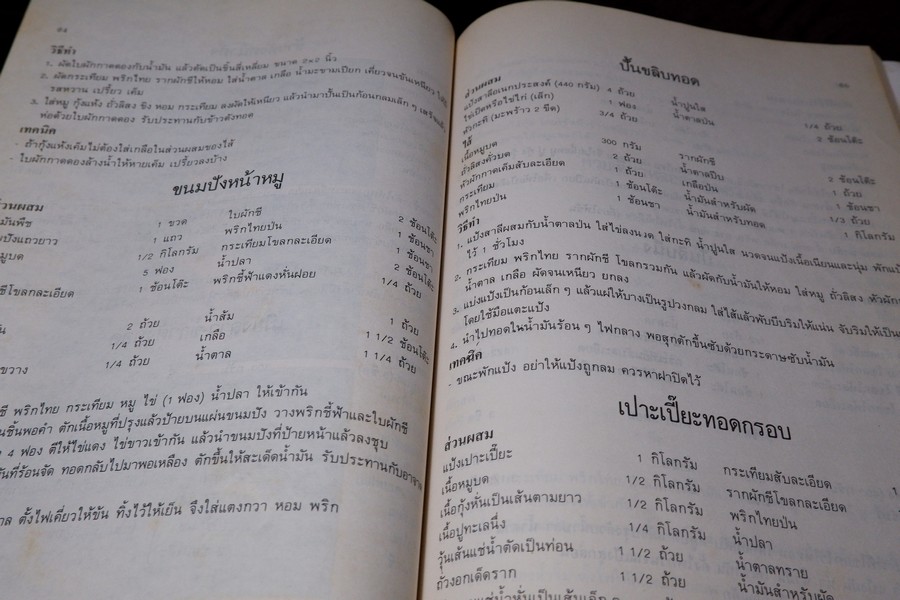 64
วิธีทำ
1. ผัดใบผักกาดดองกับน้ำมัน แล้วตัดเป็นชิ้นสี่เหลี่ยม ขนาด 2×2 นิ้ว
2. ผัดกระเทียม พริกไทย รากผักชีให้หอม ใส่น้ำตาล เกลือ น้ำมะขามเปียก เคี่ยวจนข้นเหนียว
รสหวาน เปรี้ยว เค็ม
3. ใส่หมู กุ้งแห้ง ถั่วลิสง ขิง หอม กระเทียม ลงผัดให้เหนียว แล้วนำมาปั้นเป็นก้อนกลมเล็ก ๆ
ห่อด้วยใบผักกาดดอง รับประทานกับข้าวตังทอด
เทคนิค
- ถ้ากุ้งแห้งเค็มไม่ต้องใส่เกลือในส่วนผสมของไส้
- ใบผักกาดดองล้างน้ำให้หายเค็ม เปรี้ยวลงบ้าง
ขนมปังหน้าหมู
ส่วนผสม
มันพืช 1 ขวด ใบผักชี 2 ช้อนโต๊ะ
ปังแถวยาว 1 แถว พริกไทยป่น 1 ช้อนชา
มูบด 1/2 กิโลกรัม กระเทียมโขลกละเอียด 1 ช้อนชา
5 ฟอง น้ำปลา 2 ช้อนโต๊ะ
ชีโขลกละเอียด 1 ช้อนโต๊ะ พริกชี้ฟ้าแดงหั่นฝอย 1/4 ถ้วย
2 ถ้วย น้ำส้ม 1 ถ้วย
1/4 ถ้วย เกลือ 1 1/2 ช้อนโต๊ะ
ขวาง 1/4 ถ้วย น้ำตาล 1 1/4 ถ้วย
ชี พริกไทย กระเทียม หมู ไข่ (1 ฟอง) น้ำปลา ให้เข้ากัน
นชิ้นพอคำ ตักเนื้อหมูที่ปรุงแล้วป้ายบนแผ่นขนมปัง วางพริกชี้ฟ้าและใบผักชี
4 ฟอง ตีให้ไข่แดง ไข่ขาวเข้ากัน แล้วนำขนมปังที่ป้ายหน้าแล้วลงชุบ
ันที่ร้อนจัด ทอดกลับไปมาพอเหลือง ตักขึ้นให้สะเด็ดน้ำมัน รับประทานกับอาจาด
าล ตั้งไฟเคี่ยวให้ข้น ทิ้งไว้ให้เย็น จึงใส่แตงกวา หอม พริก
ปั้นขลิบทอด
ส่วนผสม
แป้งสาลีอเนกประสงค์ (440 กรัม) 4 ถ้วย น้ำปูนใส 1/4 ถ้วย
ไข่เป็ดหรือไข่ไก่ (เล็ก) 1 ฟอง น้ำตาลป่น 2 ช้อนโต๊ะ
หัวกะทิ (มะพร้าว 2 ขีด) 3/4 ถ้วย
ไส้
เนื้อหมูบด 300 กรัม รากผักชี 2 ช้อนโต๊ะ
ถั่วลิสงคั่วบด 2 ถ้วย น้ำตาลปี๊บ 1 ถ้วย
หัวผักกาดเค็มสับละเอียด 1 ถ้วย เกลือป่น 1 ช้อนชา
กระเทียม 1 ช้อนโต๊ะ น้ำมันสำหรับผัด 1/3 ถ้วย
พริกไทยป่น 1 ช้อนชา น้ำมันสำหรับทอด 1 กิโลกรัม
วิธีทำ
1. แป้งสาลีผสมกับน้ำตาลป่น ใส่ไข่ลงนวด ใส่กะทิ น้ำปูนใส นวดจนแป้งเนื้อเนียนและนุ่ม พักแป้ง
ไว้ 1 ชั่วโมง
2. กระเทียม พริกไทย รากผักชี โขลกรวมกัน แล้วผัดกับน้ำมันให้หอม ใส่หมู ถั่วลิสง หัวผัก
น้ำตาล เกลือ ผัดจนเหนียว ยกลง
3. แบ่งแป้งเป็นก้อนเล็ก ๆ แล้วแผ่ให้บางเป็นรูปวงกลม ใส่ไส้แล้วพับบีบริมให้แน่น จับริมให้เป็น
โดยใช้มือแตะแป้ง
4. นำไปทอดในน้ำมันร้อน ๆ ไฟกลาง พอสุกตักขึ้นซับด้วยกระดาษซับน้ำมัน
เทคนิค
- ขณะพักแป้ง อย่าให้แป้งถูกลม ควรหาฝาปิดไว้
เปาะเปี๊ยะทอดกรอบ
ส่วนผสม
แป้งเปาะเปี๊ยะ 1 กิโลกรัม กระเทียมสับละเอียด
เนื้อหมูบด 1/2 กิโลกรัม รากผักชีโขลกละเอียด
เนื้อกุ้งหั่นเป็นเส้นตามยาว 1/2 กิโลกรัม พริกไทยป่น
เนื้อปูทะเลนึ่ง 1/4 กิโลกรัม น้ำปลา
วุ้นเส้นแช่น้ำตัดเป็นท่อน 1 1/2 ถ้วย น้ำตาลทราย
ถั่วงอกเด็ดราก 1 1/2 ถ้วย น้ำมันสำหรับผัด
แช่น้ำหั่นเป็นเส้นเล็ก